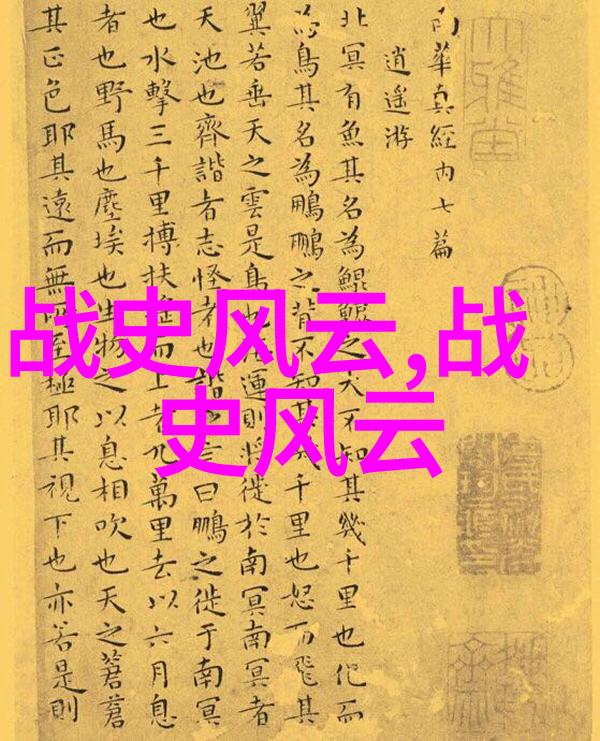 战史风云,战
史风云
大雅堂
神品
南華真經内七篇
逍遙游
北冥有魚其名為鯤鯤之大不知其幾千里也化而
為鳥其名為鵬鵬之背不知其幾千里也怒而飛其
翼若垂天之雲是鳥也海運則將徙於南冥南冥者
天池也齊諧者志怪者也諧之言曰鵬之徙于南冥
也水擊三千里搏扶搖而上者九萬里去以六月息
者也野馬也塵埃也生物之以息相吹也天之蒼蒼
其正色耶其遠而無所至極耶其視下也亦若是則